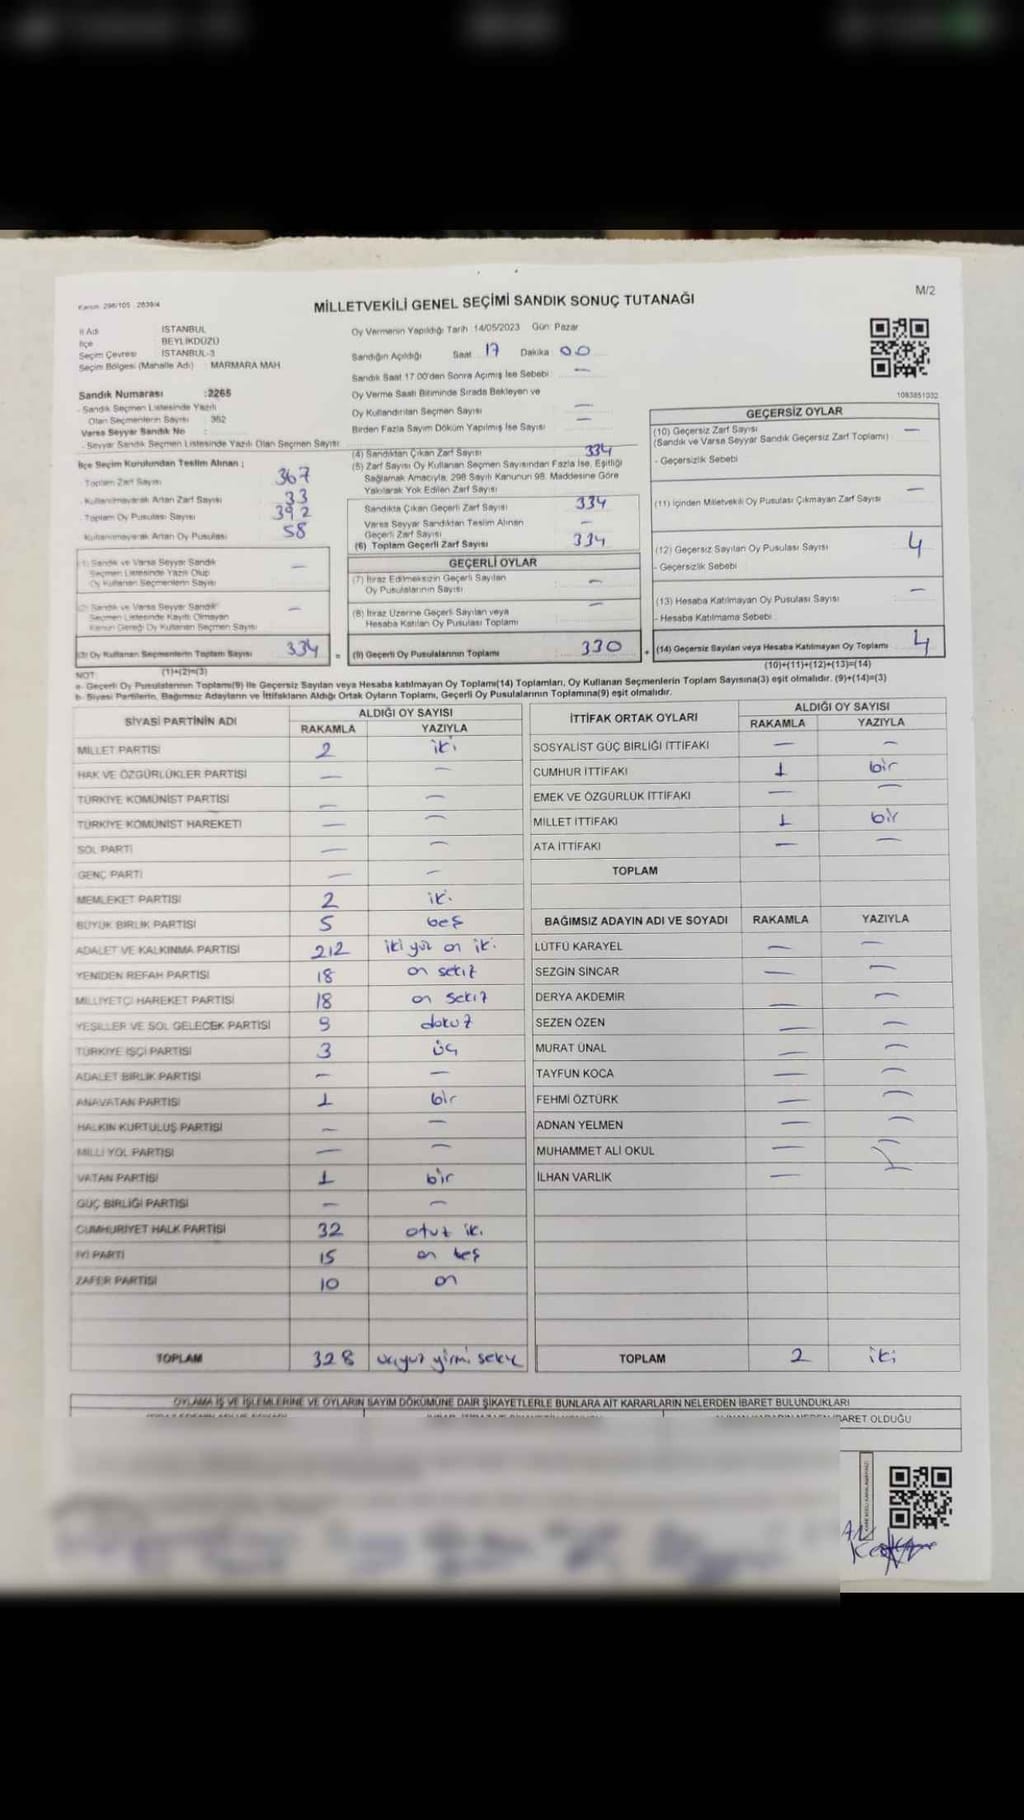 Kanun: 298/105 , 2839/4
M/2
MİLLETVEKİLİ GENEL SEÇİMİ SANDIK SONUÇ TUTANAĞI
İl Adı : İSTANBUL
İlçe : BEYLİKDÜZÜ
Seçim Çevresi : İSTANBUL-3
Seçim Bölgesi (Mahalle Adı) : MARMARA MAH
Sandık Numarası :2265
- Sandık Seçmen Listesinde Yazılı
Olan Seçmenlerin Sayısı : 362
Varsa Seyyar Sandık No :
- Seyyar Sandık Seçmen Listesinde Yazılı Olan Seçmen Sayısı:
İlçe Seçim Kurulundan Teslim Alınan ;
Toplam Zarf Sayısı 367
- Kullanılmayarak Artan Zarf Sayısı 33
- Toplam Oy Pusulası Sayısı 392
Kullanılmayarak Artan Oy Pusulası 58
(1) Sandık ve Varsa Seyyar Sandık
Seçmen Listesinde Yazılı Olup
Oy Kullanan Seçmenlerin Sayısı —
(2) Sandık ve Varsa Seyyar Sandık
Seçmen Listesinde Kayıtlı Olmayan
Kanun Gereği Oy Kullanan Seçmen Sayısı —
(3) Oy Kullanan Seçmenlerin Toplam Sayısı 334 =
Oy Vermenin Yapıldığı Tarih :14/05/2023 Gün: Pazar
Sandığın Açıldığı Saat : 17 Dakika : 00
Sandık Saat 17:00'den Sonra Açılmış İse Sebebi : —
Oy Verme Saati Bitiminde Sırada Bekleyen ve
Oy Kullandırılan Seçmen Sayısı —
Birden Fazla Sayım Döküm Yapılmış İse Sayısı : —
(4) Sandıktan Çıkan Zarf Sayısı 334
(5) Zarf Sayısı Oy Kullanan Seçmen Sayısından Fazla İse, Eşitliği
Sağlamak Amacıyla, 298 Sayılı Kanunun 98. Maddesine Göre
Yakılarak Yok Edilen Zarf Sayısı
Sandıkta Çıkan Geçerli Zarf Sayısı 334
Varsa Seyyar Sandıktan Teslim Alınan
Geçerli Zarf Sayısı —
(6) Toplam Geçerli Zarf Sayısı 334
GEÇERLİ OYLAR
(7) İtiraz Edilmeksizin Geçerli Sayılan
Oy Pusulalarının Sayısı —
(8) İtiraz Üzerine Geçerli Sayılan veya
Hesaba Katılan Oy Pusulası Toplamı —
(9) Geçerli Oy Pusulalarının Toplamı 330 +
1083851032
GEÇERSİZ OYLAR
(10) Geçersiz Zarf Sayısı —
(Sandık ve Varsa Seyyar Sandık Geçersiz Zarf Toplamı)
- Geçersizlik Sebebi
(11) İçinden Milletvekili Oy Pusulası Çıkmayan Zarf Sayısı —
(12) Geçersiz Sayılan Oy Pusulası Sayısı 4
- Geçersizlik Sebebi
(13) Hesaba Katılmayan Oy Pusulası Sayısı —
- Hesaba Katılmama Sebebi
(14) Geçersiz Sayılan veya Hesaba Katılmayan Oy Toplamı 4
NOT: (1)+(2)=(3) (10)+(11)+(12)+(13)=(14)
a- Geçerli Oy Pusulalarının Toplamı(9) ile Geçersiz Sayılan veya Hesaba katılmayan Oy Toplamı(14) Toplamları, Oy Kullanan Seçmenlerin Toplam Sayısına(3) eşit olmalıdır. (9)+(14)=(3)
b- Siyasi Partilerin, Bağımsız Adayların ve İttifakların Aldığı Ortak Oyların Toplamı, Geçerli Oy Pusulalarının Toplamına(9) eşit olmalıdır.
SİYASİ PARTİNİN ADI ALDIĞI OY SAYISI
RAKAMLA YAZIYLA
MİLLET PARTİSİ 2 iki
HAK VE ÖZGÜRLÜKLER PARTİSİ — —
TÜRKİYE KOMÜNİST PARTİSİ — —
TÜRKİYE KOMÜNİST HAREKETİ — —
SOL PARTİ — —
GENÇ PARTİ — —
MEMLEKET PARTİSİ 2 iki
BÜYÜK BİRLİK PARTİSİ 5 beş
ADALET VE KALKINMA PARTİSİ 212 iki yüz on iki
YENİDEN REFAH PARTİSİ 18 on sekiz
MİLLİYETÇİ HAREKET PARTİSİ 18 on sekiz
YEŞİLLER VE SOL GELECEK PARTİSİ 9 dokuz
TÜRKİYE İŞÇİ PARTİSİ 3 üç
ADALET BİRLİK PARTİSİ — —
ANAVATAN PARTİSİ 1 bir
HALKIN KURTULUŞ PARTİSİ — —
MİLLİ YOL PARTİSİ — —
VATAN PARTİSİ 1 bir
GÜÇ BİRLİĞİ PARTİSİ — —
CUMHURİYET HALK PARTİSİ 32 otuz iki
İYİ PARTİ 15 on beş
ZAFER PARTİSİ 10 on
TOPLAM 328 üçyüz yirmi sekiz
İTTİFAK ORTAK OYLARI ALDIĞI OY SAYISI
RAKAMLA YAZIYLA
SOSYALİST GÜÇ BİRLİĞİ İTTİFAKI — —
CUMHUR İTTİFAKI 1 bir
EMEK VE ÖZGÜRLÜK İTTİFAKI — —
MİLLET İTTİFAKI 1 bir
ATA İTTİFAKI — —
TOPLAM
BAĞIMSIZ ADAYIN ADI VE SOYADI RAKAMLA YAZIYLA
LÜTFÜ KARAYEL — —
SEZGİN SİNCAR — —
DERYA AKDEMİR — —
SEZEN ÖZEN — —
MURAT ÜNAL — —
TAYFUN KOCA — —
FEHMİ ÖZTÜRK — —
ADNAN YELMEN — —
MUHAMMET ALİ OKUL —
İLHAN VARLIK —
TOPLAM 2 iki
OYLAMA İŞ VE İŞLEMLERİNE VE OYLARIN SAYIM DÖKÜMÜNE DAİR ŞİKAYETLERLE BUNLARA AİT KARARLARIN NELERDEN İBARET BULUNDUKLARI
İBARET OLDUĞU